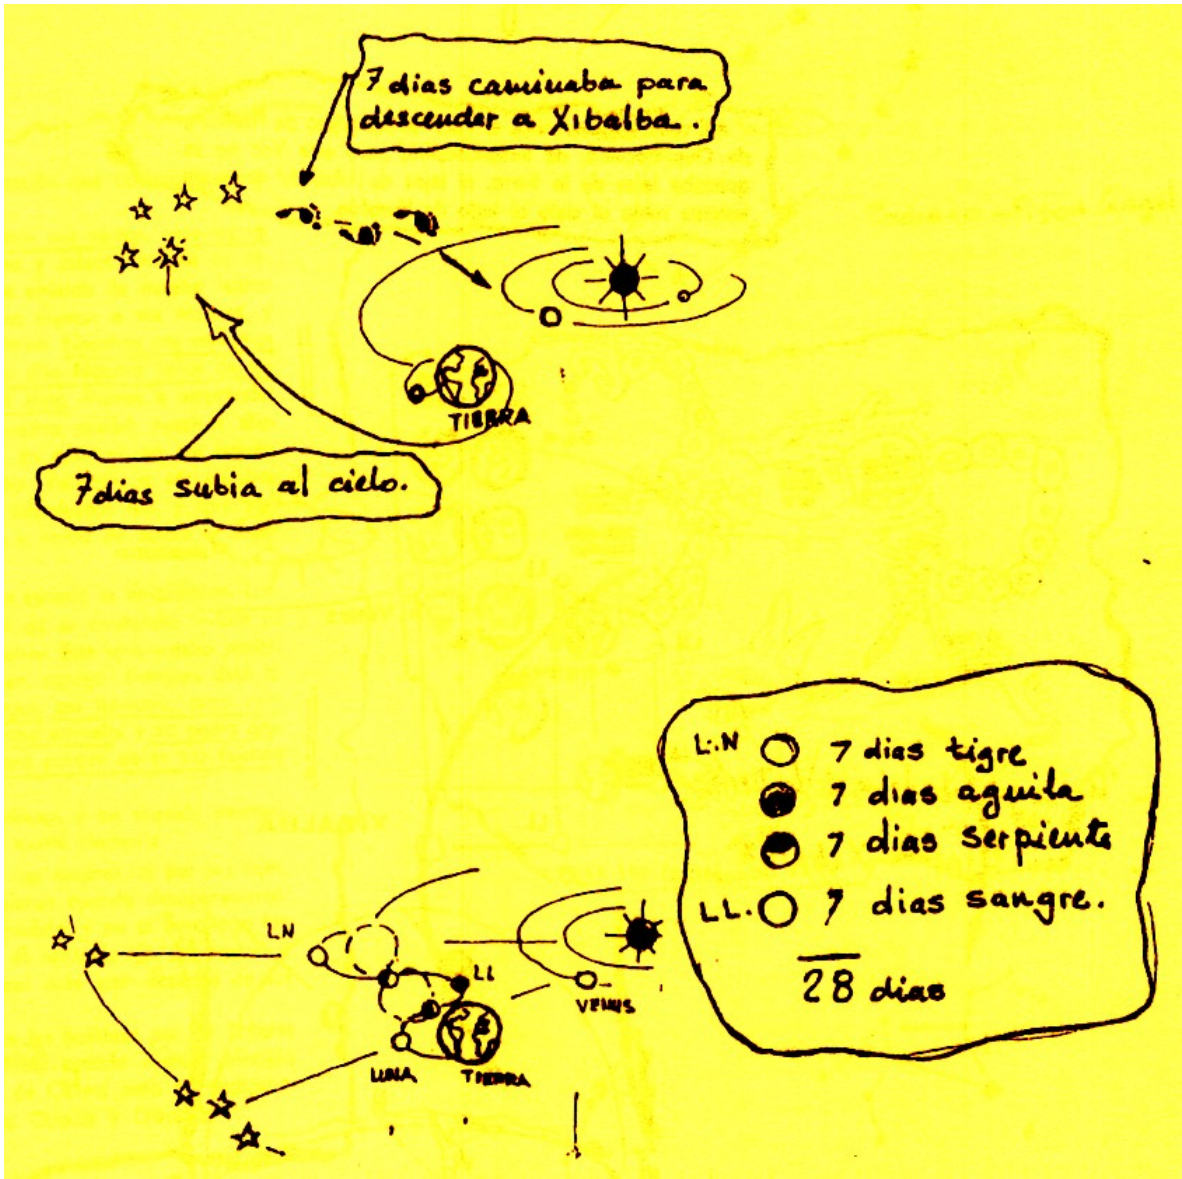 7 dias caminaba para
descender a Xibalba.
TIERRA
7 dias subia al cielo.
L.N 7 dias tigre
7 dias aguila
7 dias serpiente
LL. 7 dias sangre.
28 dias
LN
LL
VENUS
LUNA
TIERRA